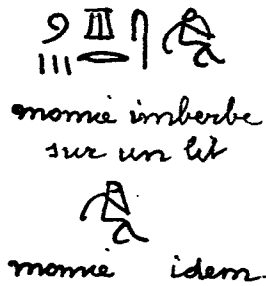 momie imberbe
sur un lit
momie idem.